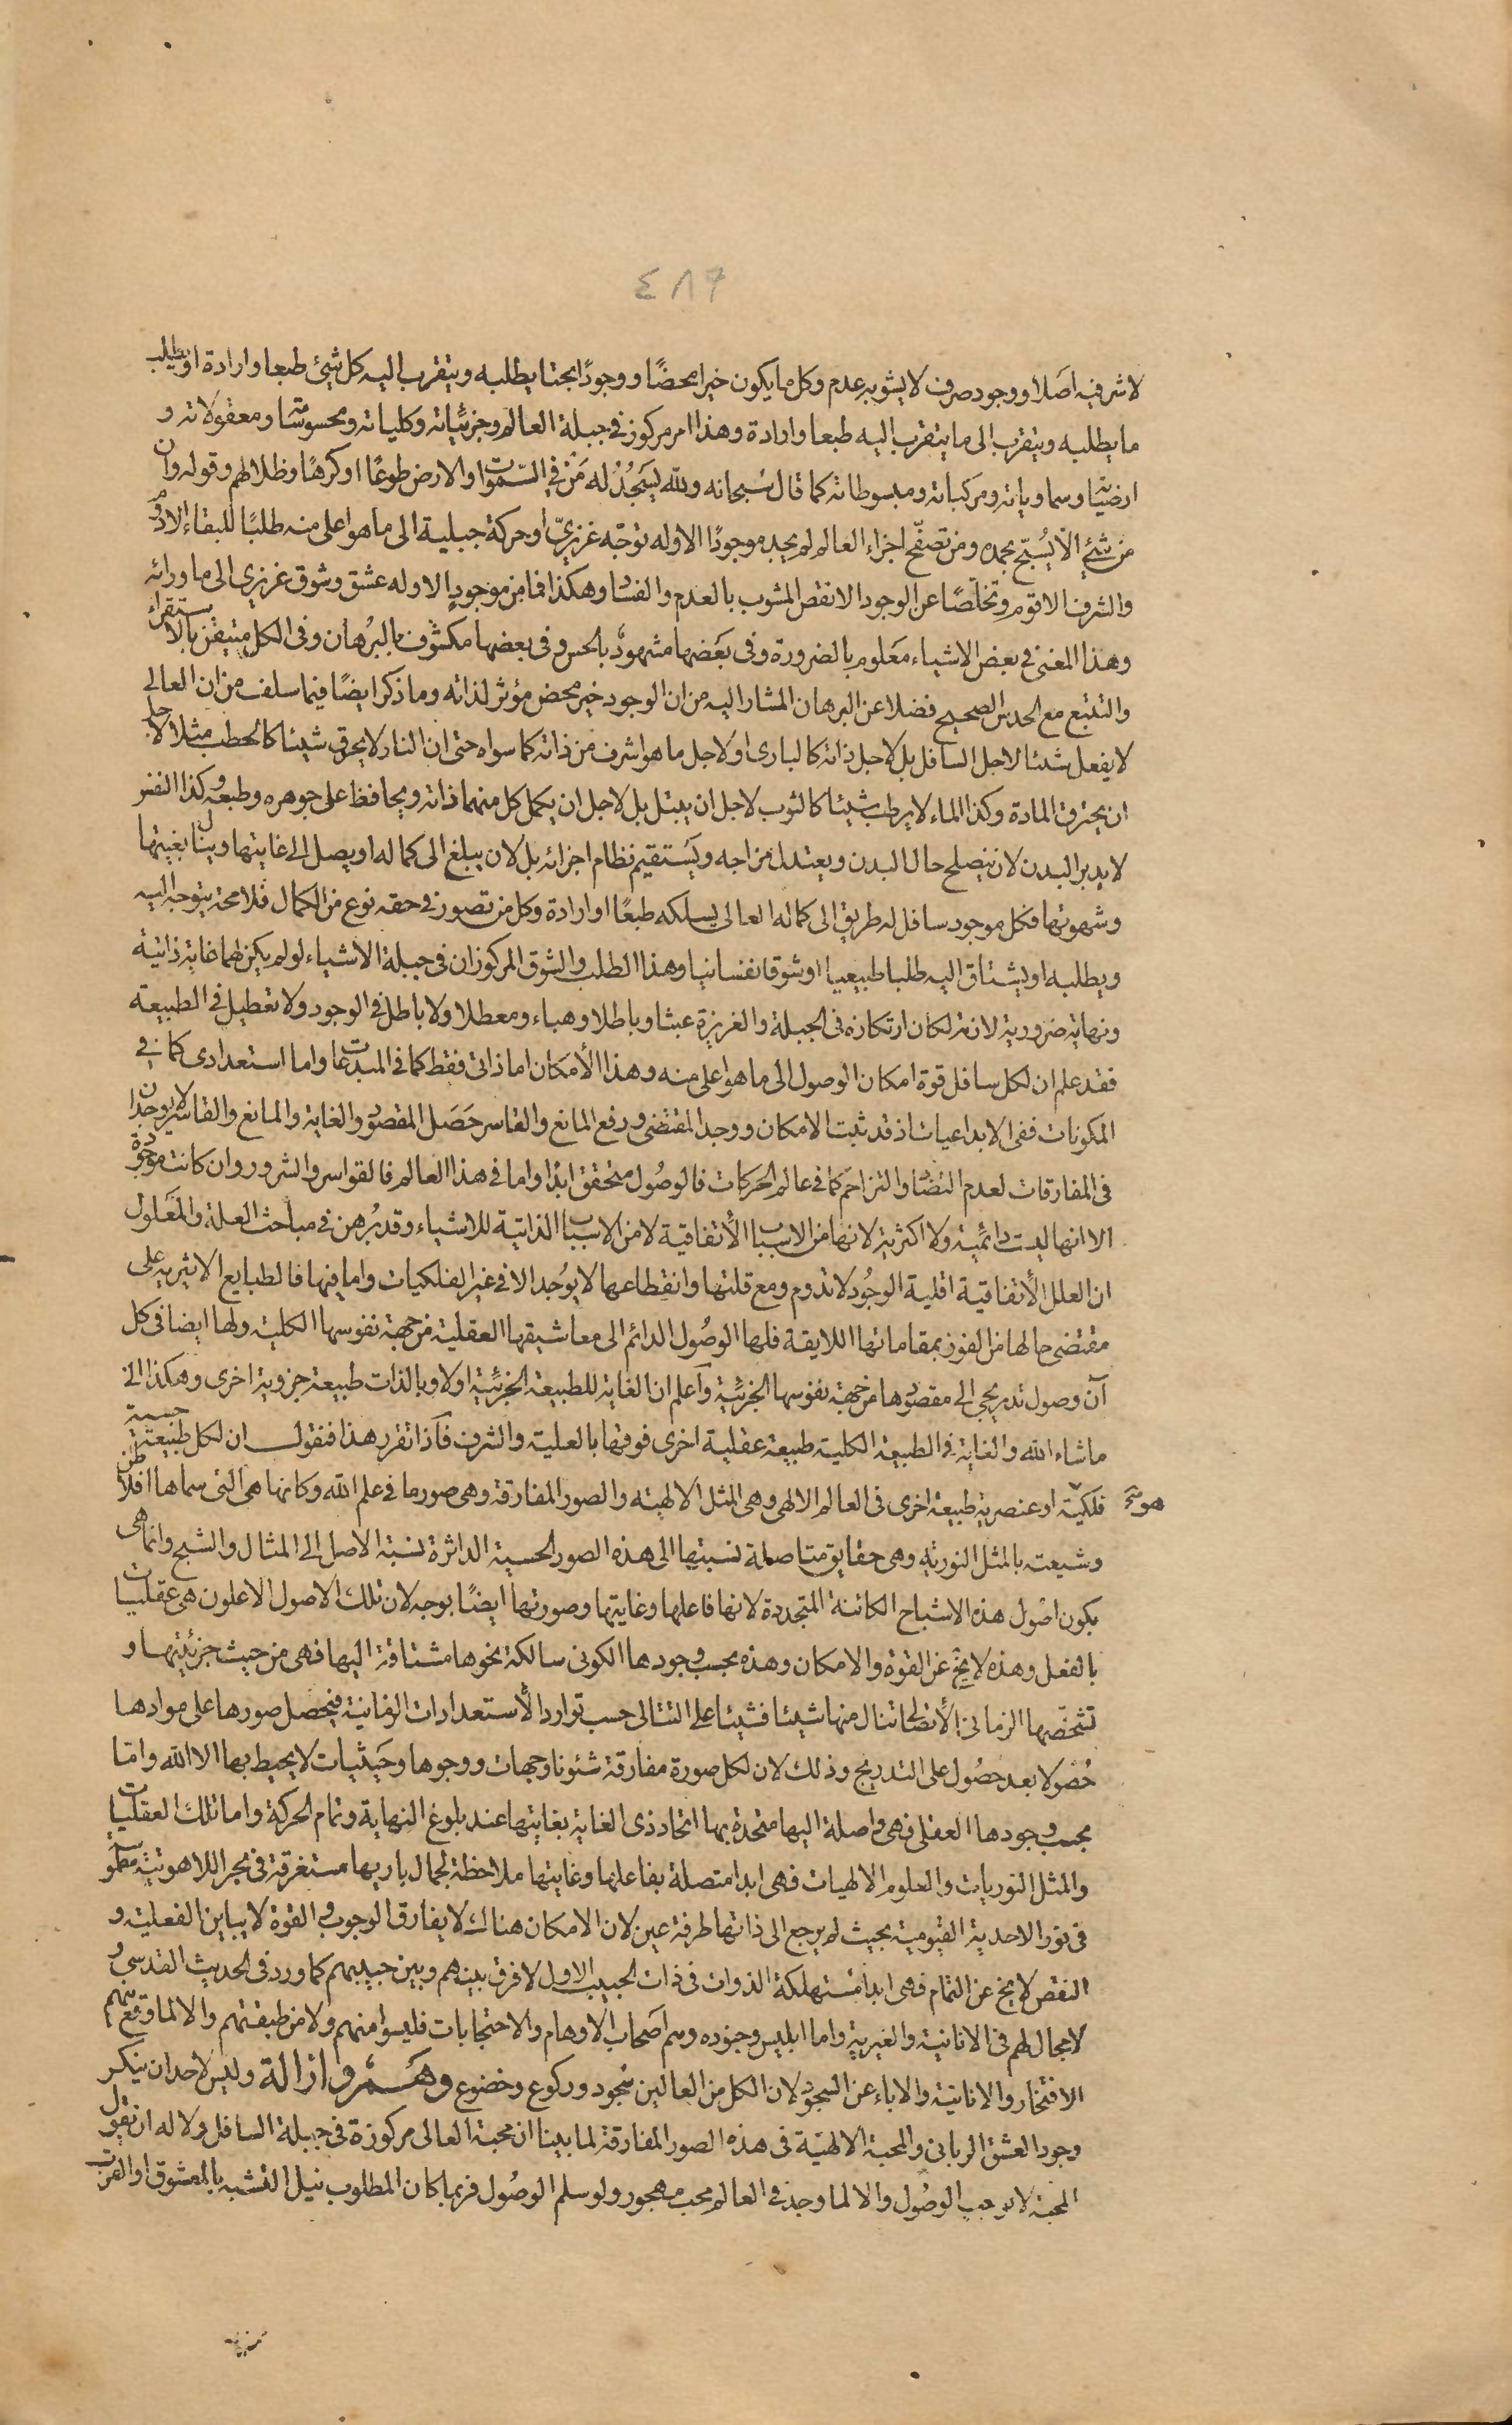 ٤٨٦
لا شر فيه اصلا ووجود صرف لا يشوبه عدم وكل ما يكون خيرا محضا ووجودًا بحتا يطلبه ويتقرب اليه كل شئ طبعا وارادة او يطلب
ما يطلبه ويتقرب الى ما يتقرب اليه طبعا وارادة وهذا امر مركوز في جبلة العالم وجزئياته وكلياته ومحسوساته ومعقولاته و
ارضياته وسماوياته ومركباته ومبسوطاته كما قال سُبحانه ولله يَسجُدُ له مَنْ في السّموات والارض طوعًا او كرهًا وظلالهم وقوله وان
من شئ الا يُسبّح بحمده ومن تصفّح اجزاء العالم لم يجد موجودًا الا وله توجّه غريزيّ او حركة جبلية الى ما هو اعلى منه طلبًا للبقاء الادوم
والشرف الاقوم وتخلّصًا عن الوجود الانقص المشوب بالعدم والفساد وهكذا فما من موجودٍ الا وله عشق وشوق غريزي الى ما ورائه
وهذا المعنى في بعض الاشياء معلوم بالضرورة وفي بعضها مشهودٌ بالحس وفي بعضها مكشوف بالبرُهان وفي الكل متيقن بالاستقراء
والتتبع مع الحدس الصحيح فضلا عن البرهان المشار اليه من ان الوجود خير محض مؤثر لذاته وما ذكر ايضًا فيما سلف من ان العالي
لا يفعل شيئا لاجل السافل بل لاجل ذاته كالبارى او لاجل ما هو اشرف من ذاته كما سواه حتى ان النار لا يحرق شيئا كالحطب مثلا لاجل
ان يحترق المادة وكذا الماء لا يرطب شيئا كالثوب لاجل ان يبتل بل لاجل ان يكمل كل منهما ذاته ويحافظ على جوهره وطبعه وكذا النفس
لا يدبر البدن لان ينصلح حال البدن ويعتدل مزاجه ويَستقيم نظام اجزائه بل لان يبلغ الى كماله او يصل الى غايتها وينال بغيتها
وشهوتها فكل موجود سافل له طريق الى كماله العالى يسلكه طبعًا او ارادة وكل من تصور في حقه نوع من الكمال فلا محة يتوجه اليه
ويطلبه او يشتاق اليه طلبا طبيعيا او شوقا نفسانيا وهذا الطلب والشوق المركوزان في جبلة الاشياء لو لم يكن لهما غاية ذاتية
ونهاية ضرورية لانه لكان ارتكازه في الجبلة والغريزة عبثا وباطلا وهباء ومعطلا ولا باطل في الوجود ولا تعطيل في الطبيعة
فقد علم ان لكل سافل قوة امكان الوصول الى ما هو اعلى منه وهذا الأمكان اما ذاتى فقط كما في المبدعات واما استعدادى كما في
المكونات ففي الابداعيات اذ قد ثبت الامكان ووجد المقتضى ورفع المانع والقاسر حَصَل المقصود والغاية والمانع والقاسر لا يوجدان
في المفارقات لعدم التضاد والتزاحم كما في عالم الحركات فالوصُول متحقق ابدًا واما في هذا العالم فالقواسر والشرور وان كانت موجودة
الا انها ليست دائمية ولا اكثرية لانها من الاسباب الأتفاقية لا من الاسباب الذاتية للاشياء وقد بُرهن في مباحث العلة والمَعلول
ان العلل الأتفاقية اقلية الوجُود لا تدوم ومع قلتها وانقطاعها لا يوُجد الا في غير الفلكيات واما فيها فالطبايع الاثيرية على
مقتضى حالها من الفوز بمقاماتها اللايقة فلها الوصُول الدائم الى معاشيقها العقلية من جهة نفوسها الكلية ولها ايضا في كل
آن وصول تدريجي الى مقصودها من جهة نفوسها الجزئية وآعلم ان الغاية للطبيعة الجزئية اولا وبالذات طبيعة جزوية اخرى وهكذا الى
ما شاء الله والغاية في الطبيعة الكلية طبيعة عقلية اخرى فوقها بالعلية والشرف فآذا تقرر هذا فنقول ان لكل طبيعة حسية
فلكيّة او عنصرية طبيعة اخرى في العالم الالهى وهي المثل الالهية والصور المفارقة وهي صور ما في علم الله وكانها هي التى سماها افلاطن
وشيعته بالمثل النورية وهي حقايق متاصلة نسبتها الى هذه الصور الحسية الداثرة نسبة الاصل الى المثال والشبح وانما هى
يكون اصُول هذه الاشباح الكائنة المتجددة لانها فاعلها وغايتها وصورتها ايضًا بوجه لان تلك الاصول الاعلون هي عقليات
بالفعل وهذه لا يخ عن القوة والامكان وهذه بحسب وجودها الكونى سالكة نحوها مشتاقة اليها فهى من حيث جزئيتها و
تشخّصها الزمانى الأتصالى تنال منها شيئا فشيئا على التتالى حسب توارد الأستعدادات الزمانية فيحصل صورها على موادها
حُصُولا بعد حصُول على التدريج وذلك لان لكل صورة مفارقة شئونا وجهات ووجوها وحَيثيات لا يحيط بها الا الله وامّا
بحسب وجودها العقلى فهى واصلة اليها متحدة بها اتحاد ذى الغاية بغايتها عند بلوغ النهاية وتمام الحركة واما تلك العقليات
والمثل النوريات والعلوم الالهيات فهى ابدا متصلة بفاعلها وغايتها ملاحظة لجمال باريها مستغرقة في بحر اللاهوتية
في نور الاحدية القيومية بحيث لم يرجع الى ذاتها طرفة عين لان الامكان هناك لا يفارق الوجوب والقوة لا يباين الفعلية و
النقص لا يخ عن التمام فهى ابدا مُستهلكة الذوات في ذات الحبيب الاول لا فرق بينهم وبين حبيبهم كما ورد في الحديث القدسي و
لا مجال لهم في الانانية والغيرية واما ابليس وجنوده وهم اصحاب الاوهام والاحتجابات فليسوا منهم ولا من طبقتهم والا لما وقع منهم
الافتخار والانانية والاباء عن السجود لان الكل من العالين سُجود وركوع وخضوع وهَــمٌ وازالة وليس لاحد ان ينكر
وجود العشق الربانى والمحبة الالهيّة في هذه الصور المفارقة لما بينا ان محبة العالى مركوزة في جبلة السافل ولا له ان يقول
المحبة لا توجب الوصُول والا لما وجد في العالم محب مهجور ولو سلم الوصُول فربما كان المطلوب نيل التشبه بالمعشوق او القرب